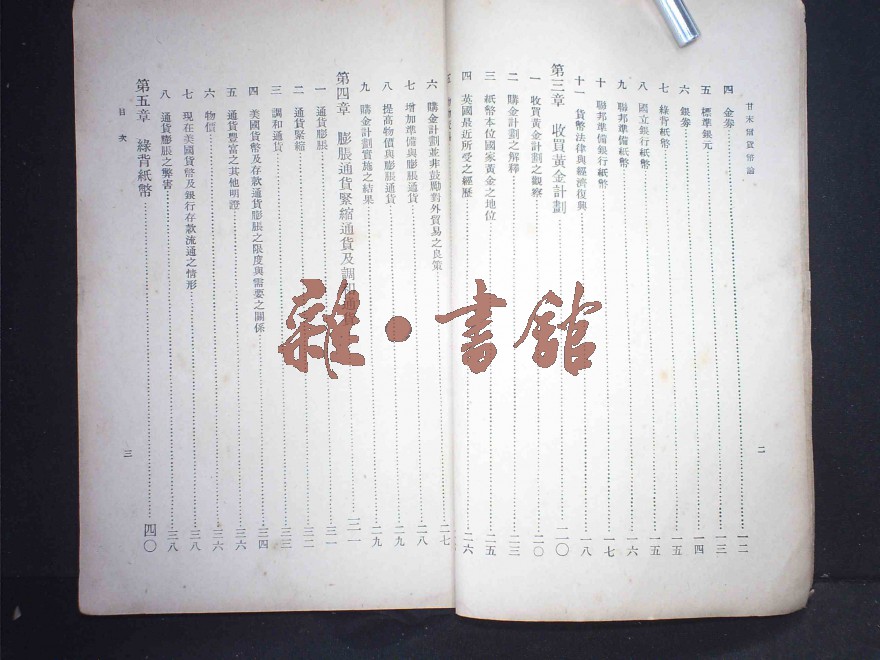 甘末爾貨幣論
二
四 金券 一二
五 標準銀元 一三
六 銀券 一四
七 綠背紙幣 一五
八 國立銀行紙幣 一五
九 聯邦準備紙幣 一六
十 聯邦準備銀行紙幣 一七
十一 貨幣法律與經濟復興 一八
第三章 收買黃金計劃 二〇
一 收買黃金計劃之觀察 二〇
二 購金計劃之解釋 二三
三 紙幣本位國家黃金之地位 二五
四 英國最近所受之經歷 二六
五
六 購金計劃並非鼓勵對外貿易之良策 二七
七 增加準備與膨脹通貨 二八
八 提高物價與膨脹通貨 二九
九 購金計劃實施之結果 二九
第四章 膨脹通貨緊縮通貨及調和通 三一
一 通貨膨脹 三一
二 通貨緊縮 三二
三 調和通貨 三三
四 美國貨幣及存款通貨膨脹之限度與需要之關係 三四
五 通貨豐富之其他明證 三六
六 物價 三六
七 現在美國貨幣及銀行存款流通之情形 三八
八 通貨膨脹之弊害 三八
第五章 綠背紙幣 四〇
目次
三
雜·書館